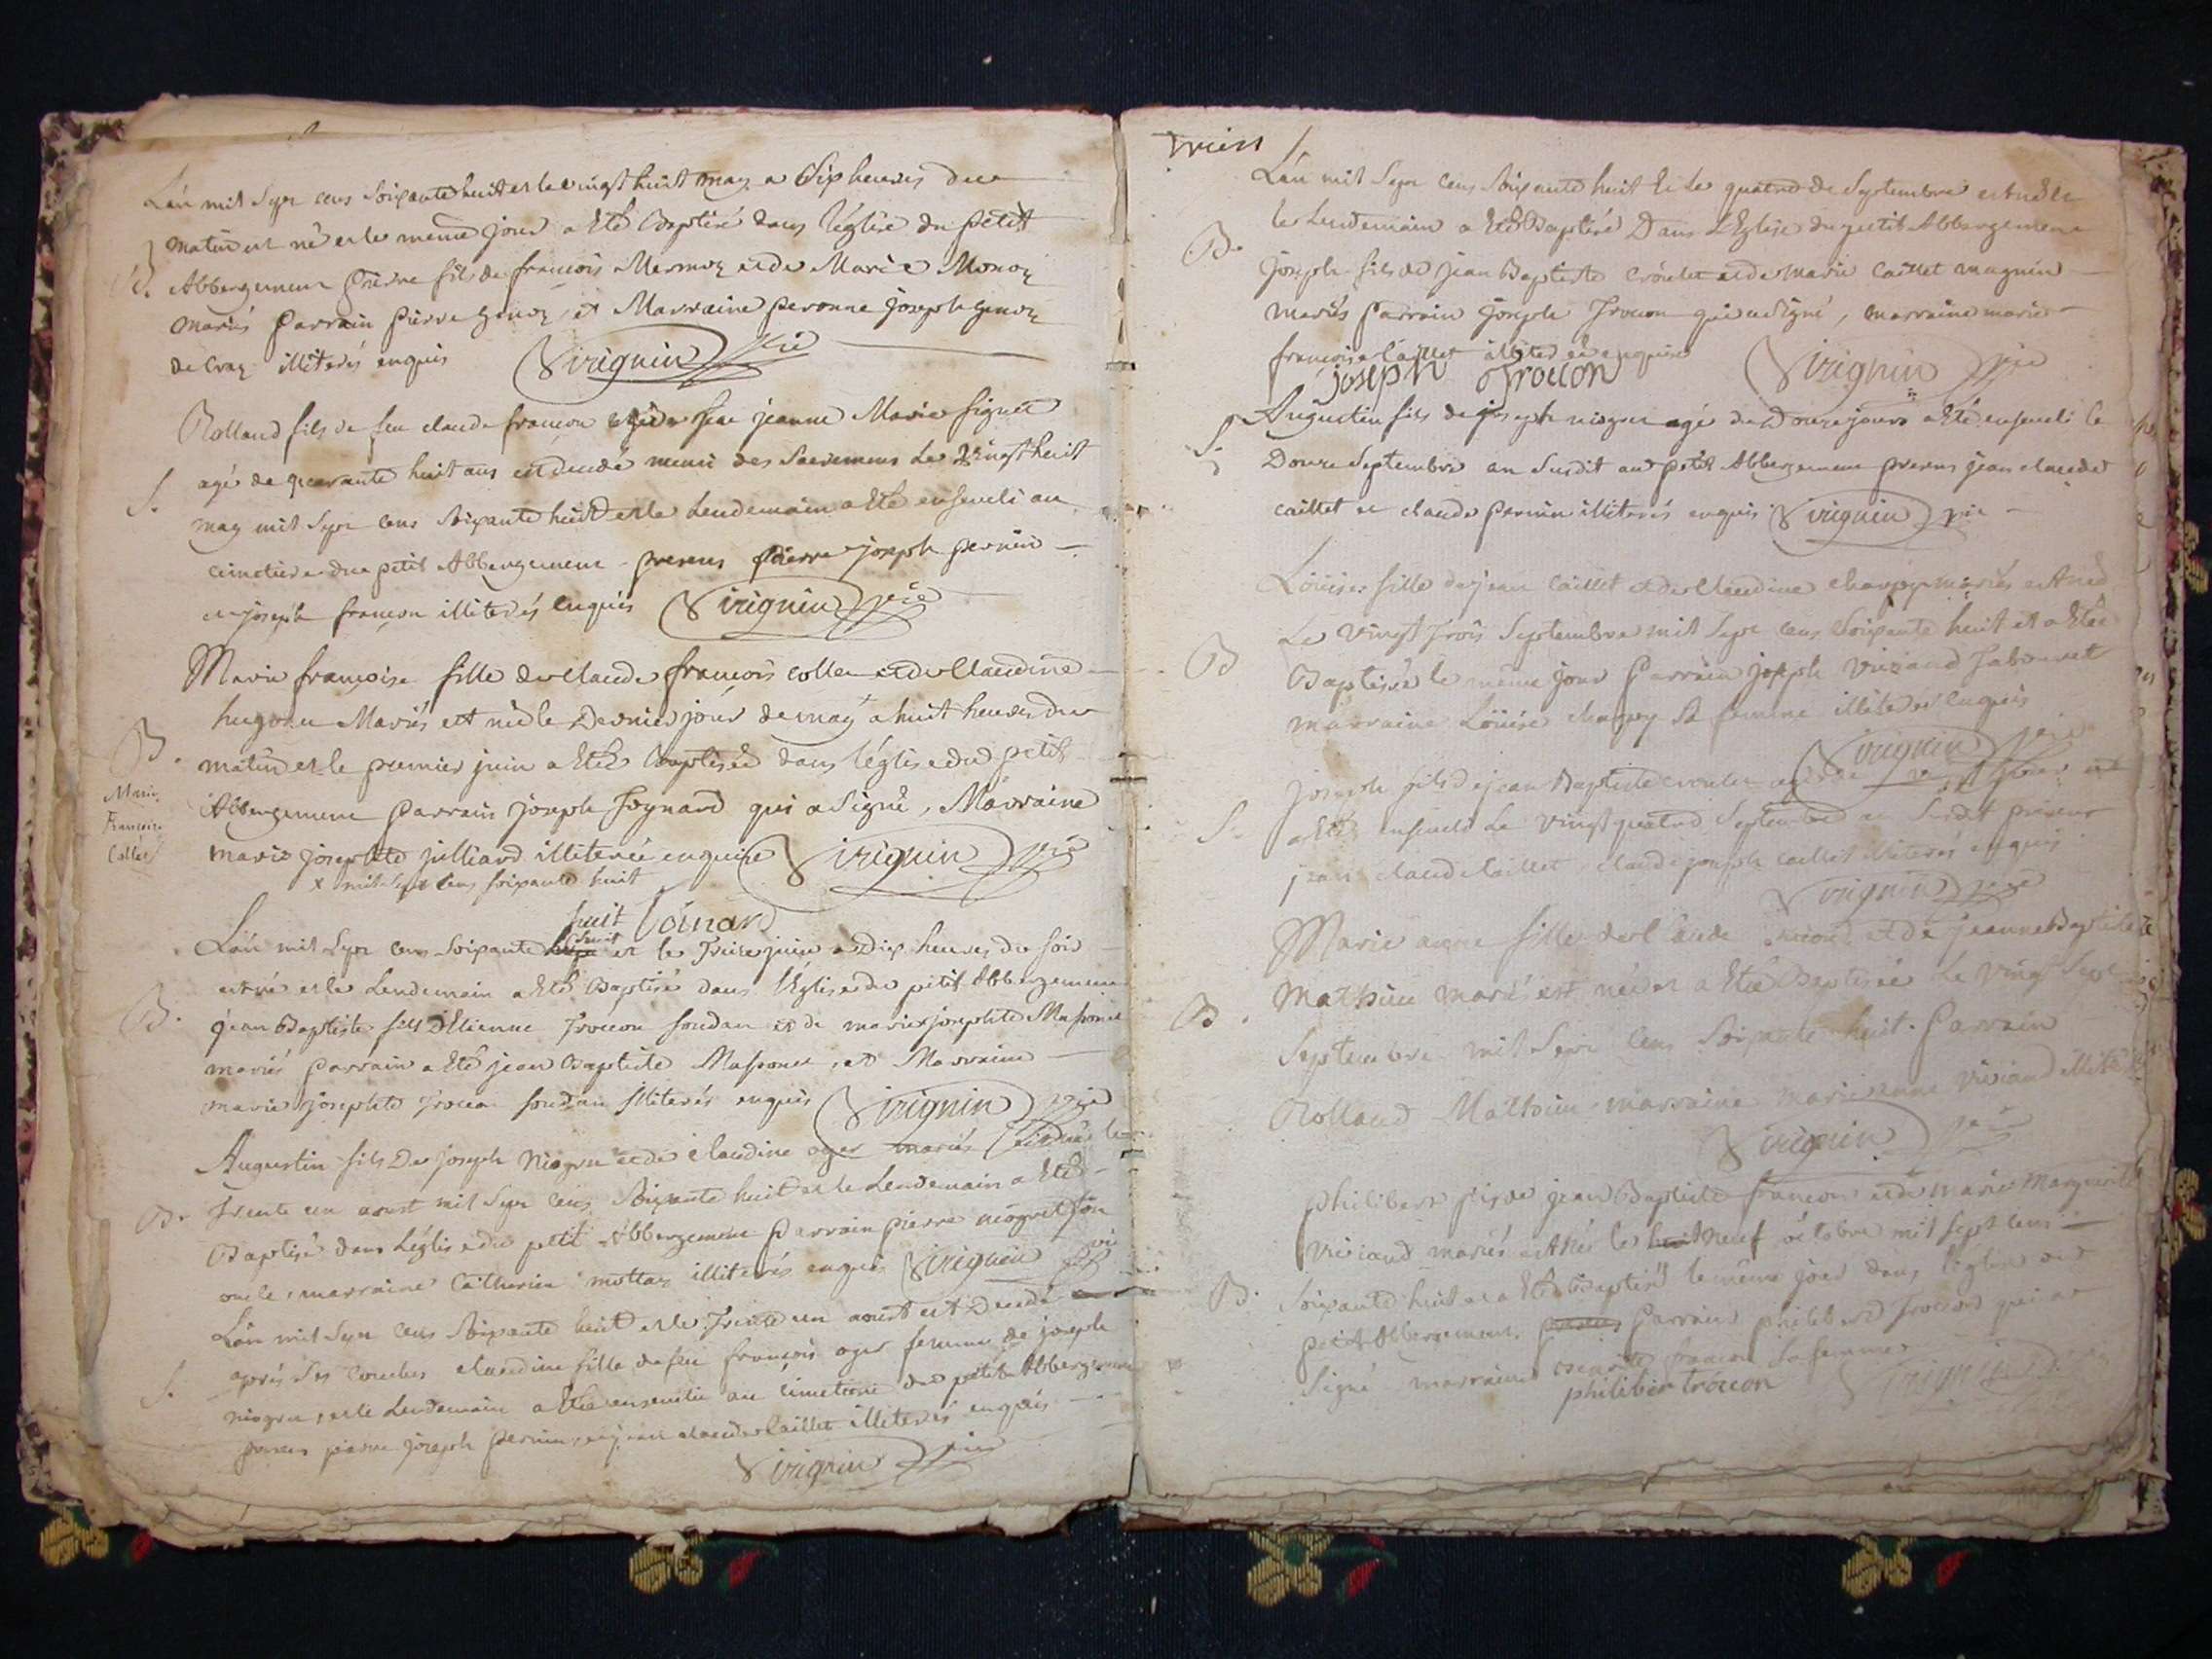 L'an mil Sept cens Soixante huit et le vingt huit may a Six heures du
matin est né et le meme jour a Eté Baptisé dans l'église du petit
B. Abbergement pierre fils de françois Mermoz et de Marie Monoz
mariés parrain pierre genoz, et Marraine peronne joseph genoz
de Craz illiterés enquis Virignin
Rolland fils de feu claude françon et de feue jeanne Marie signet
agé de quarante huit ans est decedé muni des Sacremens Le Vingt huit
S. may mil Sept cens Soixante huit et le Lendemain a Eté enseveli au
cimetiere du petit Abbergement presens pierre joseph pernin
et joseph françon illiterés enquis Virignin
Marie françoise fille de Claude françois collet et de Claudine
hugon Mariés est née le Dernier jour de may + a huit heures du
B. matin et le premier juin a Eté Baptisée dans l'église du petit
Marie
Françoise
Collet
Abbergement parrain joseph joynard qui a Signé, Marraine
marie josephte julliard illiterée enquise Virignin
x mil Sept cens soixante huit
L'an mil Sept cens Soixante huit et le Treize juin a Dix heures du soir
est né et le Lendemain a Eté Baptisé dans l'Eglise du petit Abbergement
B. jean Baptiste fils d'Etienne Trocon soudan et de marie josephte Massonet
mariés parrain a Eté jean Baptiste Massonet, et Marraine
marie josephte Trocon soudan illiterés enquis Virignin
Augustin fils De joseph Niogret et de claudine oger mariés est né le
B. Trente un aoust mil Sept cens Soixante huit et le Lendemain a Eté
Baptisé dans L'église du petit Abbergement parrain pierre niogret son
oncle, marraine Catherine mottaz illiterés enquis Virignin
L'an mil Sept cens Soixante huit et le Trente un aoust est Decedé
S. après Ses Couches claudine fille de feu françois oger femme de joseph
niogret, et le Lendemain a Eté ensevelie au cimetiere du petit Abbergement
presens pierre joseph pernin, et jean claude Caillet illiterés enquis
Virignin
L'an mil Sept cens Soixante huit Et Le quatre de Septembre est né et
le Lendemain a Eté Baptisé Dans L'Eglise du petit Abbergement
B. joseph fils de jean Baptiste croulet et de marie Caillet magnin
mariés parrain joseph Trocon qui a Signé, marraine marie
françoise Caillet illiterée enquise Virignin
joseph Trocon
Augustin fils de joseph niogret agé de Douze jours a Eté enseveli le
S. Douze Septembre an Susdit au petit Abbergement presens jean claude
caillet et claude pernin illiterés enquis Virignin
Loüise fille de jean Caillet et de Claudine chappuy mariés est née
Le Vingt Trois Septembre mil Sept cens Soixante huit et a Eté
B Baptisée le même jour parrain joseph Viviand Tabouret
marraine Loüise chappuy Sa femme illiterés enquis
Virignin
joseph fils de jean Baptiste croulet agé de vingt jours
S. a Eté enseveli Le Vingt quatre Septembre an Susdit presens
jean claude Caillet claude joseph caillet illiterés enquis
Virignin
Marie anne fille de Claude et de jeanne Baptiste
Mathieu mariés est née et a Eté Baptisée Le Vingt Sept
B. Septembre mil Sept cens Soixante huit. parrain
Rolland Mathieu marraine marianne Viviand
Virignin
philibert fils de jean Baptiste françon et de marie Marguerite
Viviand mariés est né le huit neuf octobre mil Sept cens
B. Soixante huit et a Eté Baptisé le même jour dans l'église du
petit Abbergement parrain philibert Trocon qui a
Signé marraine françon Sa femme
philiber trocon Virignin